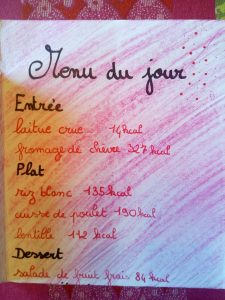 Menu du jour
Entrée
laitue crue 14 kcal
fromage de chèvre 327 kcal
Plat
riz blanc 135 kcal
cuisse de poulet 190 kcal
lentille 112 kcal
Dessert
salade de fruit frais 84 kcal